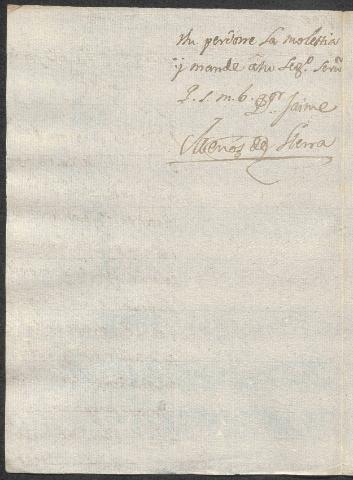 perdone la molestia
y mande á su Seg.º Serv.
Q. s. m. b. Jaime
de Sierra